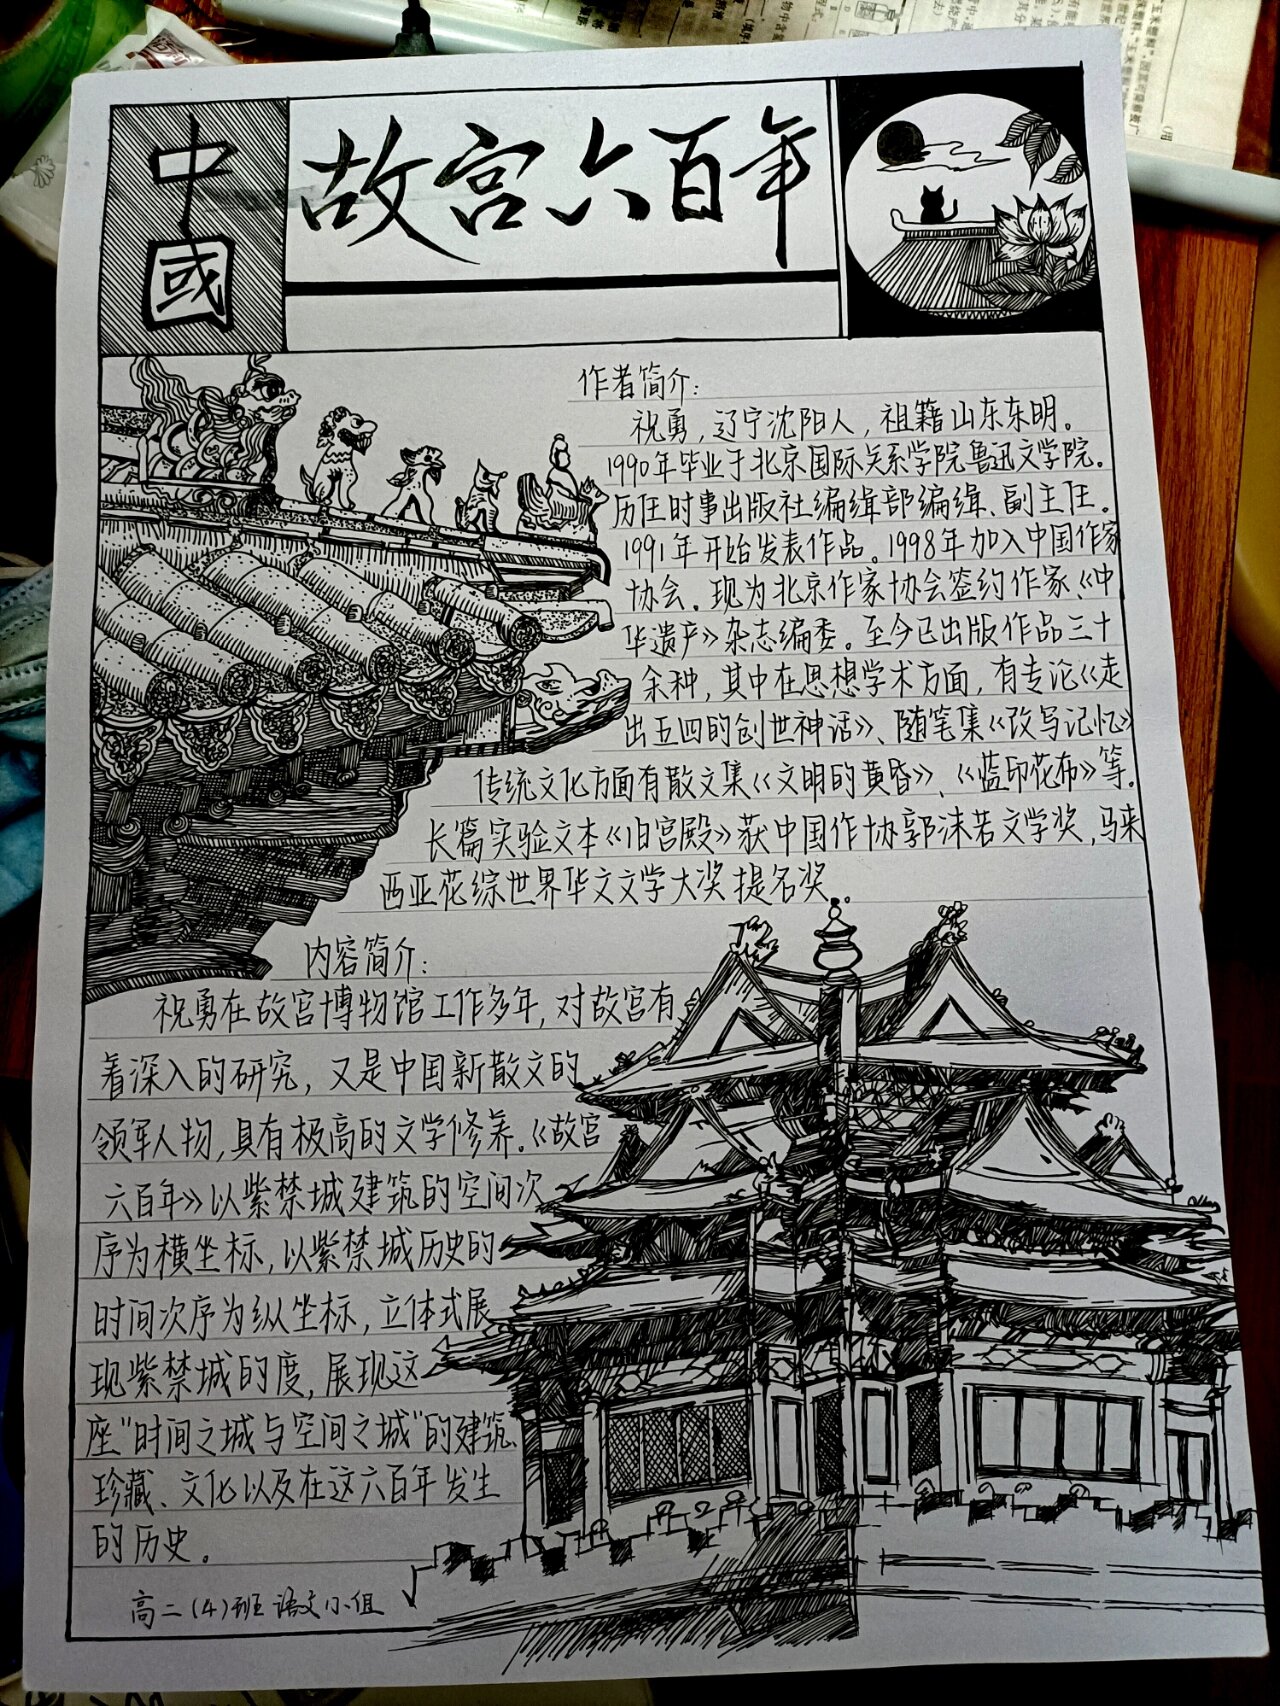 中
國
故宫六百年
作者简介：
祝勇，辽宁沈阳人，祖籍山东东明。
1990年毕业于北京国际关系学院鲁迅文学院。
历任时事出版社编缉部编缉、副主任。
1991年开始发表作品。1998年加入中国作家
协会。现为北京作家协会签约作家《中
华遗产》杂志编委。至今已出版作品三十
余种，其中在思想学术方面，有专论《走
出五四的创世神话》、随笔集《改写记忆》
传统文化方面有散文集《文明的黄昏》、《蓝印花布》等。
长篇实验文本《旧宫殿》获中国作协郭沫若文学奖，马来
西亚花综世界华文文学大奖提名奖。
内容简介：
祝勇在故宫博物馆工作多年，对故宫有
着深入的研究，又是中国新散文的
领军人物，具有极高的文学修养。《故宫
六百年》以紫禁城建筑的空间次
序为横坐标，以紫禁城历史的
时间次序为纵坐标，立体式展
现紫禁城的度，展现这
座"时间之城与空间之城"的建筑、
珍藏、文化以及在这六百年发生
的历史。
高二（4）班 语文小组